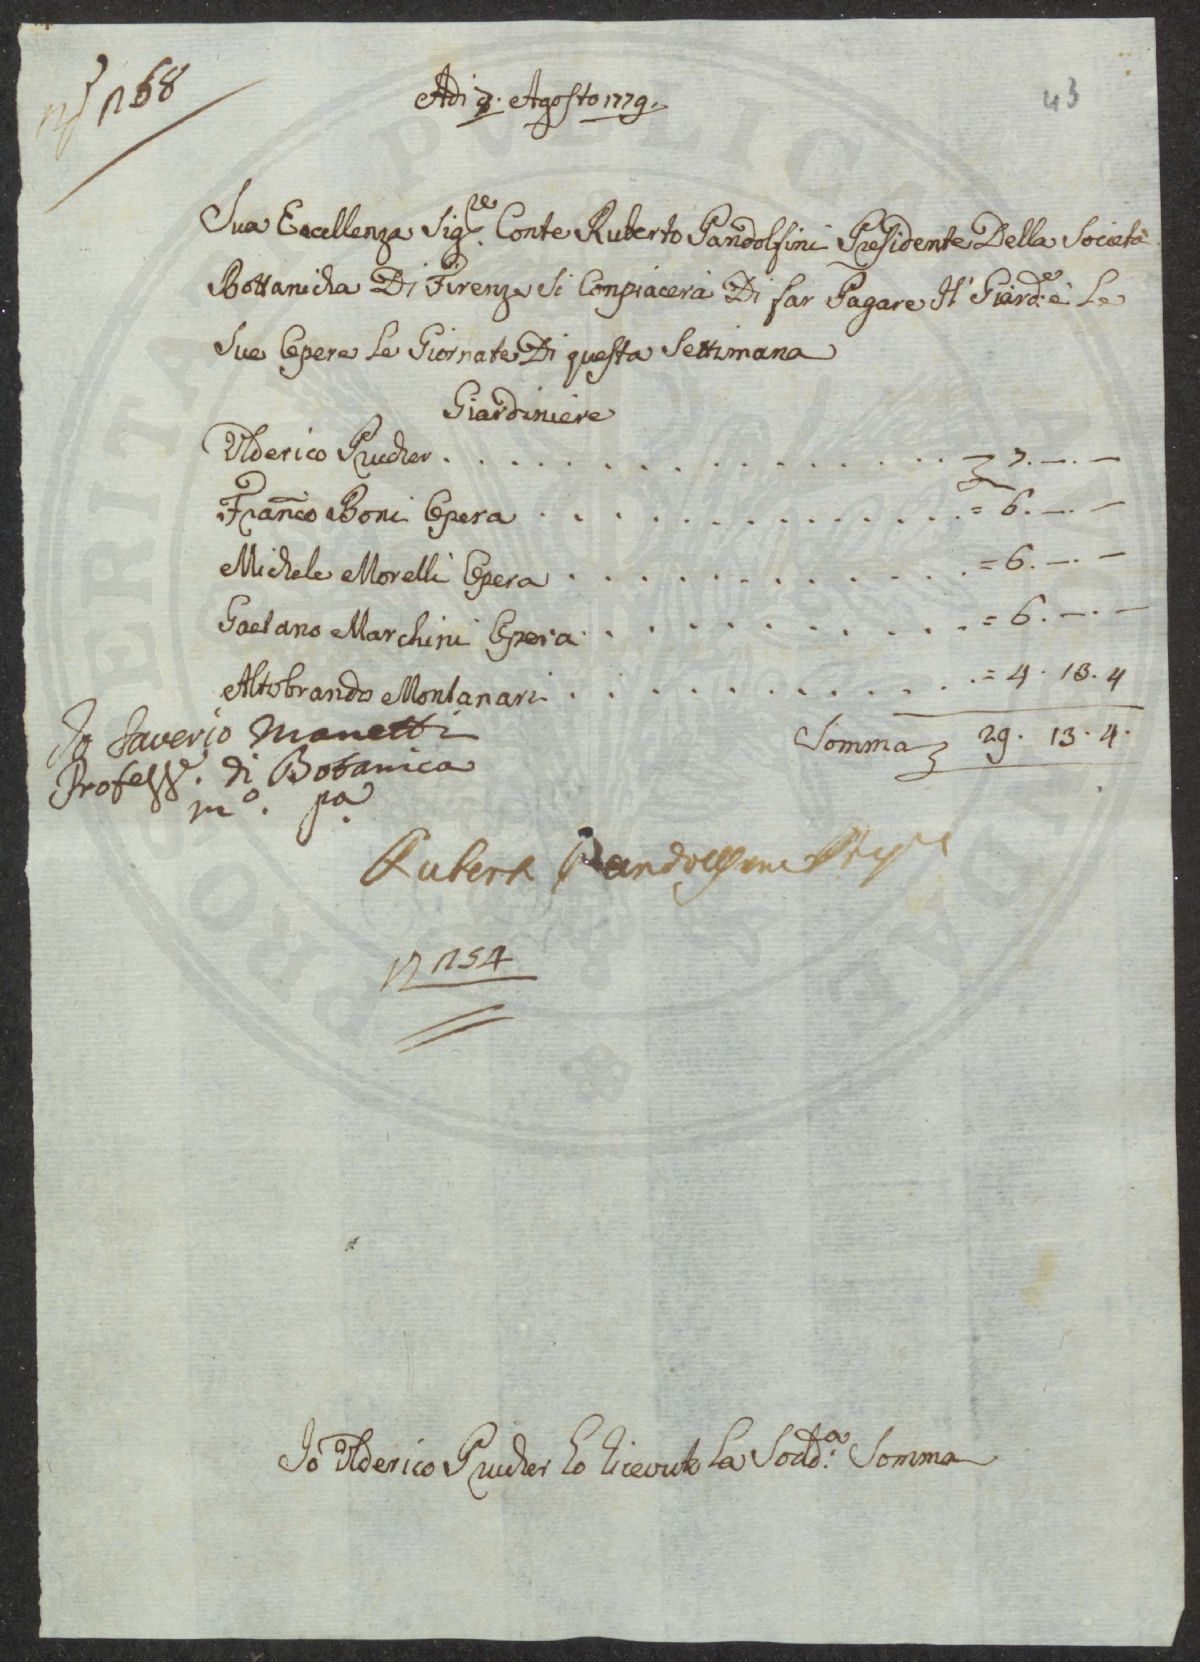 n 168
43
Adi 7. Agosto 1779.
Sua Eccellenza Sig.re Conte Ruberto Pandolfini Presidente Della Società
Bottanicha Di Firenze Si Conpiacerà Di far Pagare Il Giard.e è Le
Sue Opere Le Giornate Di questa Settimana
Giardiniere
Ulderico Prucher . . . . . . . . 7. —. —
Fran.co Boni Opera . . . . . . . . = 6. —. —
Michele Morelli Opera . . . . . . . . = 6. —. —
Gaetano Marchini Opera . . . . . . . . = 6. —. —
Altobrando Montanari . . . . . . . . = 4. 13. 4
Somma 29. 13. 4.
Io Saverio Manetti
Profess.e di Botanica
m.o p.a
Rubert Pandolfini
n 154
Io Ulderico Prucher ho ricevuto La Sodd.a Somma
PROSPERITATI PUBLICAE